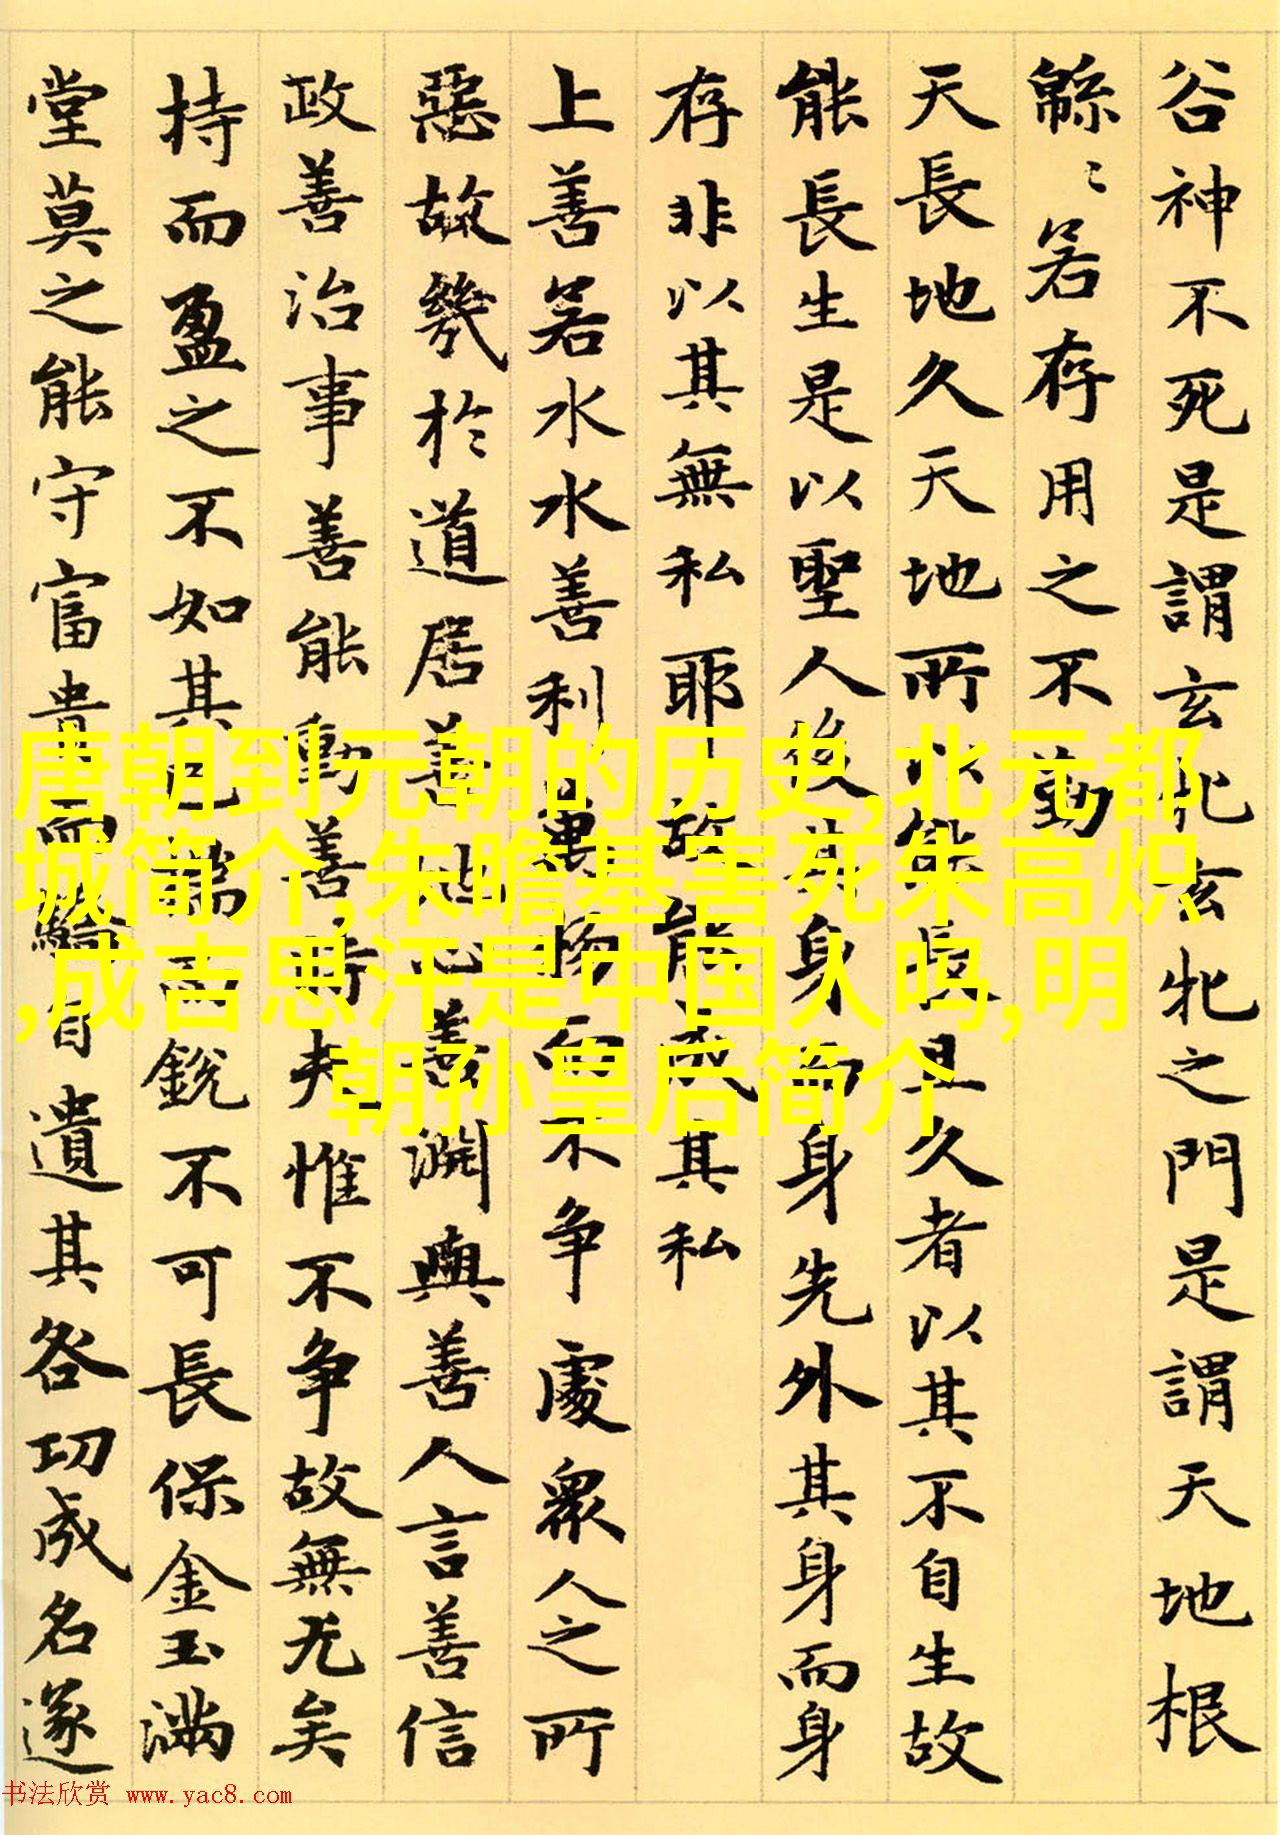 谷神不死是謂玄牝玄牝之門是謂天地根
緜〻若存用之不勤
天長地久天地所以能長且久者以其不自生故
能長生是以聖人後其身而身先外其身而身
存非以其無私耶故能成其私
上善若水水善利萬物而不争處衆人之所
惡故幾於道居善地心善淵與善人言善信
政善治事善能動善時夫惟不争故無尤矣
持而盈之不如其已揣而銳不可長保金玉滿
堂莫之能守富貴而驕自遺其咎功成名遂
唐朝到元朝的历史,北元都
城简介,朱瞻基害死朱高炽
,成吉思汗是中国人吗,明
朝孙皇后简介
书法欣赏 www.yac8.com